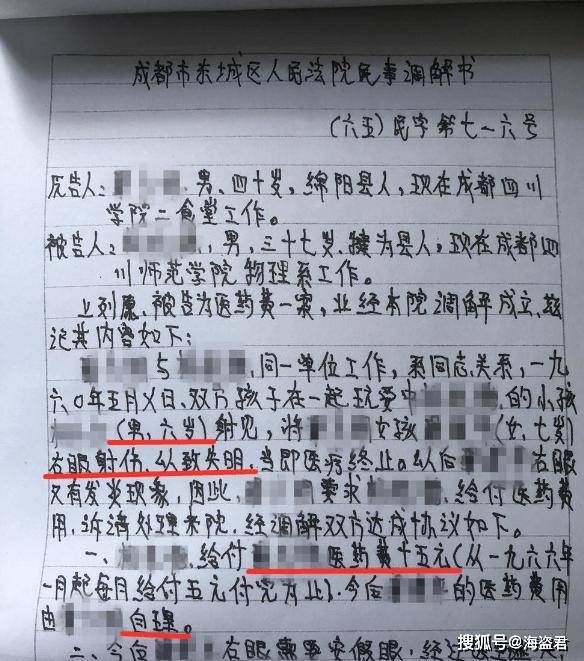 成都市东城区人民法院民事调解书
(六五)民字第七一六号
原告人: 男、四十岁,绵阳县人,现在成都四川
学院二食堂工作。
被告人: ,男,三十七岁,犍为县人,现在成都四
川师范学院物理系工作。
上列原、被告为医药费一案,业经本院调解成立,兹
记其内容如下:
与 同一单位工作,系同志关系,一九
六〇年五月 日、双方孩子在一起玩耍中 的小孩
(男,六岁)射 ,将 女孩 (女,七岁)
右眼射伤,以致失明,当即医疗终止。以后 右眼
又有发炎现象,因此, 要求 给付医药费
用,诉请处理来院,经调解双方达成协议如下。
一、 给付 医药费十五元(从一九六六年
一月起每月给付五元付完为止),今后 的医药费用
由 自理。
二、今后 右眼 要安假眼,经
搜狐号@海盗君